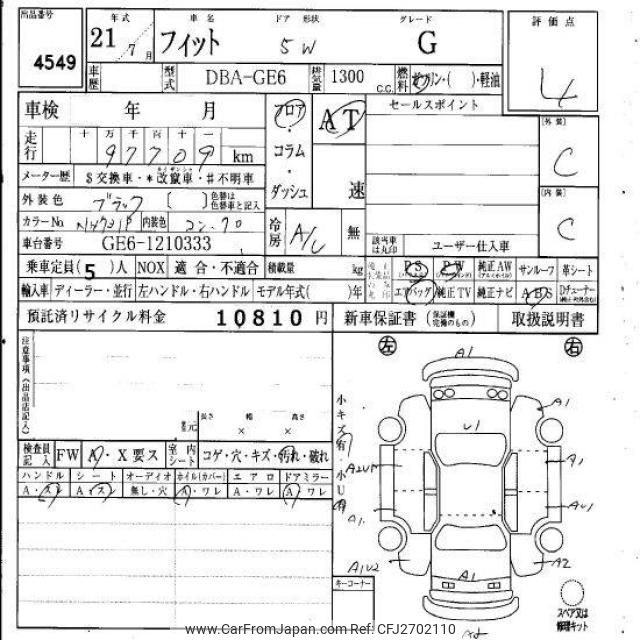 出品番号
4549
年式 車名 ドア 形状 グレード 評価点
21 7月 フィット 5W G 4
車歴 型式 DBA-GE6 排気量 1300 C.C. 燃料 ガソリン・( )・軽油
車検 年 月 フロア AT セールスポイント
走行 十 万 千 百 十 一
97709 km
[外装]
C
コラム
メーター歴 $交換車・*改竄車・#不明車
ダッシュ 速
[内装]
C
外装色 ブラック [ ] 色替は色替車と記入
カラーNo. NH731P 内装色 コン.クロ
冷房 A/C 無
該当車は丸印 ユーザー仕入車
車台番号 GE6-1210333
乗車定員(5)人 NOX 適合・不適合 積載量 kg
PS PW 純正AW サンルーフ 革シート
輸入車 ディーラー・並行 左ハンドル・右ハンドル モデル年式( )年
エアバッグ 純正TV 純正ナビ ABS Dチューナー
預託済リサイクル料金 10810 円 新車保証書 (保証欄完備のもの) 取扱説明書
注意事項(出品店記入)
左 右
A1
A1
U1
小キズ有
長さ 幅 高さ
荷元 × ×
検査員記入 FW A・X要ス 室内シート コゲ・穴・キズ・汚れ・破れ
小U有
A2U1
A1
ハンドル シート オーディオ ホイル(カバー) エアロ ドアミラー
A・スレ A・スレ 無し・穴 A・ワレ A・ワレ A・ワレ
A1
AU1
A1U2
A2
A1
キーコーナー
スペア又は修理キット
www.CarFromJapan.com Ref: CFJ2702110